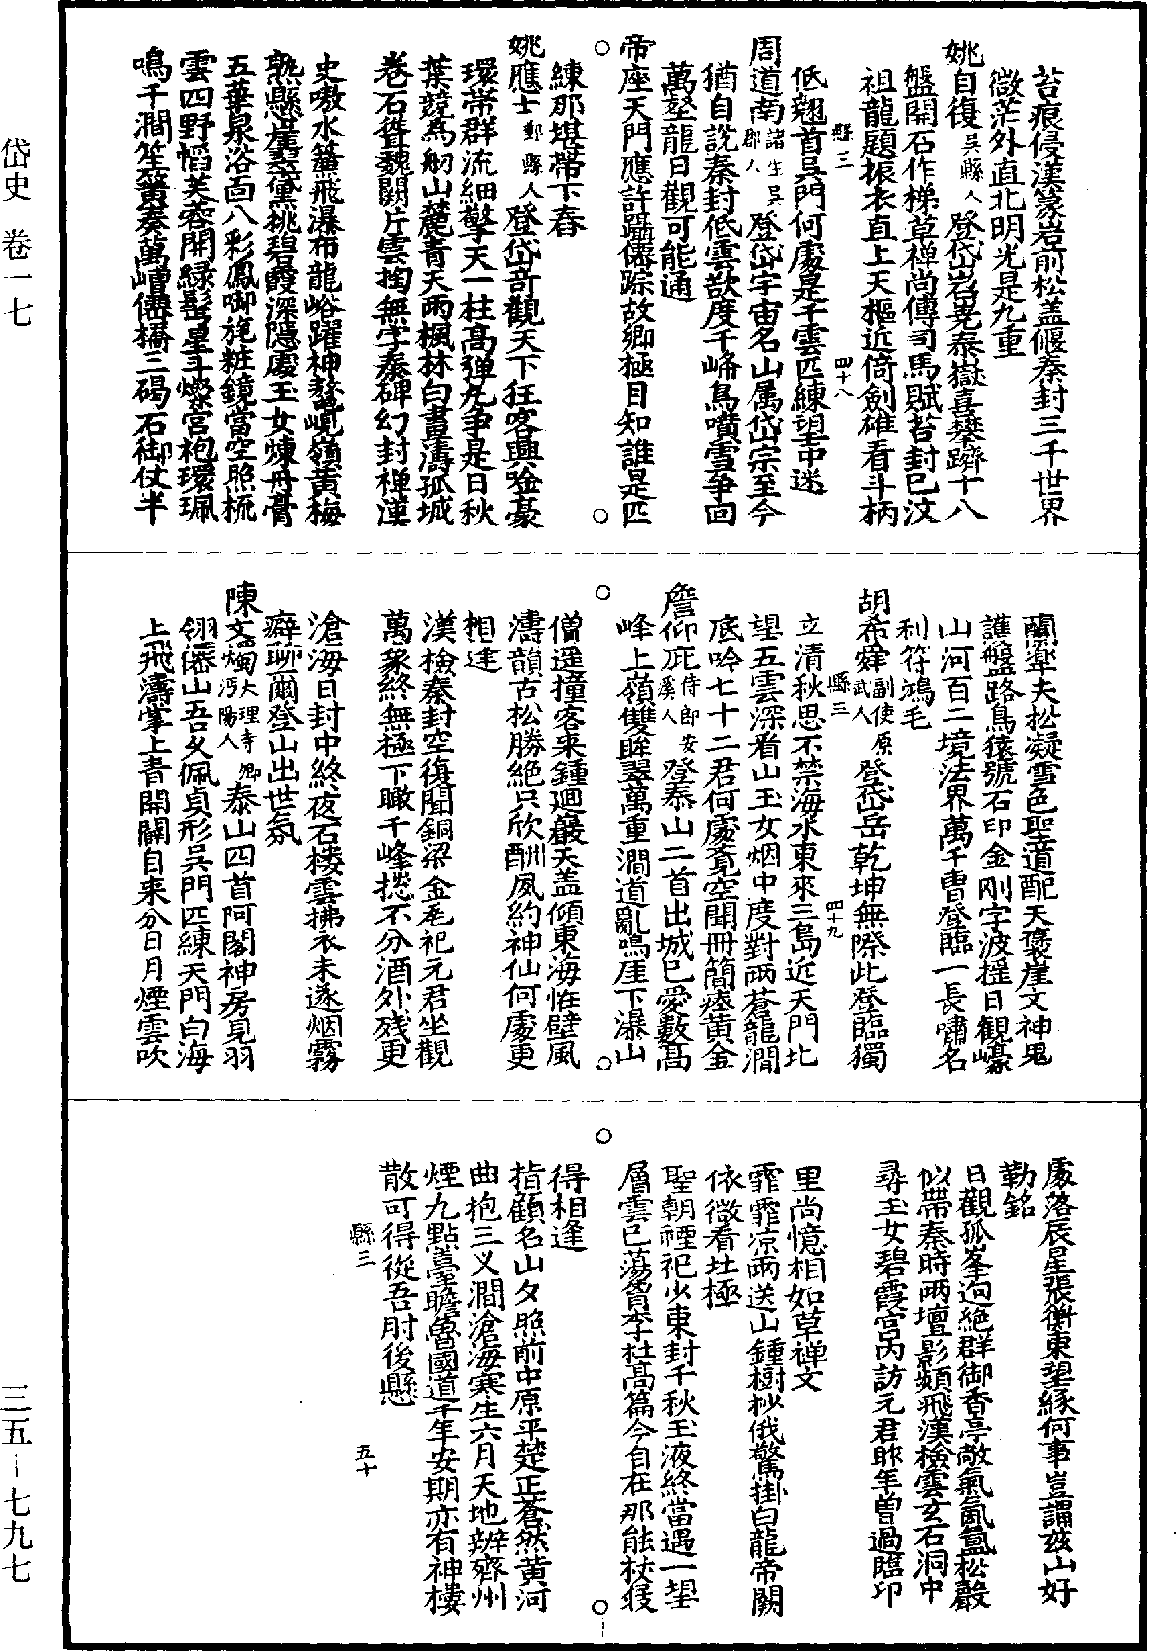 岱史 卷一七
三五—七九七
苔痕侵漢篆岩前松盖偃秦封三千世界
微茫外直北明光是九重
姚自復吳縣人登岱岩晃泰嶽喜攀躋十八
盤開石作梯草禅尚傳司馬賦苔封已汶
祖龍題振衣直上天樞近倚劍雄看斗柄
縣三 四十八
低翹首吳門何處是千雲匹練望中迷
周道南諸生吳郡人登岱宇宙名山属岱宗至今
猶自説秦封低雲欲度千峰鳥噴雪争回
萬壑龍日觀可能通
帝座天門應許躡僊踪故鄉極目知誰是匹
練那堪帶下舂
姚應士鄞縣人登岱竒觀天下狂客興唫豪
環帶群流細擎天一柱高弹丸争是日秋
葉競為舠山麓青天兩楓林白晝濤孤城
卷石聳魏闕片雲掏無字秦碑幻封禅漢
史嗷水簾飛瀑布龍峪躍神鰲峴嶺黄梅
熟懸崖翠黛桃碧霞深隠處玉女煉丹膏
五華泉浴面八彩鳳唧旄粧鏡當空照梳
雲四野韬芙蓉開緑髻星斗燦宫袍環珮
鳴千澗笙簧奏萬嶆僊橋三碣石御仗半
蘭臺夫松凝雪色聖道配天褒崖文神鬼
護盤路鳥猿號石印金刚字波摇日觀嶹
山河百二境法界萬千曹登臨一長嘯名
利符鴻毛
胡希舜副使原武人登岱岳乾坤無際此登臨獨
縣三 四十九
立清秋思不禁海水東來三島近天門北
望五雲深看山玉女烟中度對兩蒼龍澗
底吟七十二君何處覔空聞冊簡瘞黄金
詹仰庇侍郎安溪人登泰山二首出城已愛數髙
峰上嶺雙眸翠萬重澗道亂鳴厓下瀑山
僧遥撞客来鍾迴巖天盖傾東海恠壁風
濤韻古松勝絶只欣酬夙約神仙何處更
相逢
漢檢秦封空復聞銅梁金雀祀元君坐觀
萬象終無極下瞰千峰摠不分酒外残更
滄海日封中終夜石楼雲拂衣未遂烟霧
癖聊爾登山出世氛
陳文燭大理寺卿沔陽人泰山四首阿閣神房見羽
翎僊山吾乆佩貞形吳門匹練天門白海
上飛濤掌上青開闢自来分日月煙雲吹
處落辰星張衡東望緣何事豈謂兹山好
勒銘
日觀孤峯逈絶群御香亭敞氣氤氲松巖
似帶秦時雨壇影頻飛漢檢雲玄石洞中
尋玉女碧霞宫丙訪元君昨年曽過臨卭
里尚憶相如草禅文
霏霏凉雨送山鍾樹杪俄驚掛白龍帝闕
依微看北極
聖朝禋祀少東封千秋玉液終當遇一望
層雲已蕩胷李杜髙篇今自在那能杖屐
得相逢
指顧名山夕照前中原平楚正蒼然黄河
曲抱三义澗滄海寒生六月天地辨齊州
煙九點臺瞻魯國道千年安期亦有神楼
散可得從吾肘後懸
縣三 五十